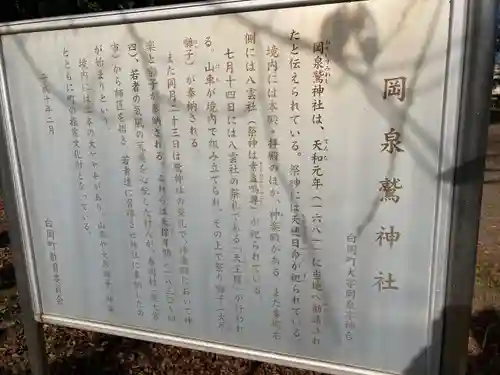 岡泉鷲神社
白岡町大字岡泉字神山
岡泉鷲神社は、天和元年(一六八一)に当地へ勧請され
たと伝えられている。祭神には天穂日命が祀られている。
境内には本殿・拝殿のほか、神楽殿がある。また本殿東
側には八雲社(祭神は素盞嗚尊)が祀られている。
七月十四日には八雲社の祭礼である「天王様」が行われ
る。山車が境内で組み立てられ、その上で祭り囃子(大
囃子)が奉納される。
また同月二十三日は鷲神社の祭礼で、神楽殿において神
楽と囃子が奉納される。
四)、若者の気風の荒廃を心配した村人が、
市)から師匠を招き、若者達に習得させ神社に奉納したの
が始まりという。
境内には
とともに町の指定文化財となっている。
平成十年二月
白岡町教育委員会